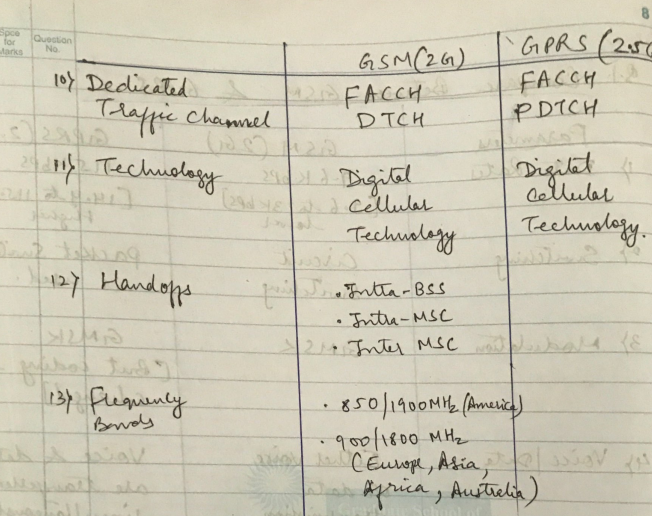 8
Space for Marks
Question No.
GSM(2G) GPRS (2.5G
10) Dedicated Traffic Channel
FACCH
DTCH
FACCH
PDTCH
11) Technology
Digital
Cellular
Technology
Digital
Cellular
Technology.
12) Handoffs
• Intra-BSS
• Intra-MSC
• Inter MSC
13) Frequency
Bands
• 850/1900MHz (America)
• 900/1800 MHz
(Europe, Asia,
Africa, Australia)